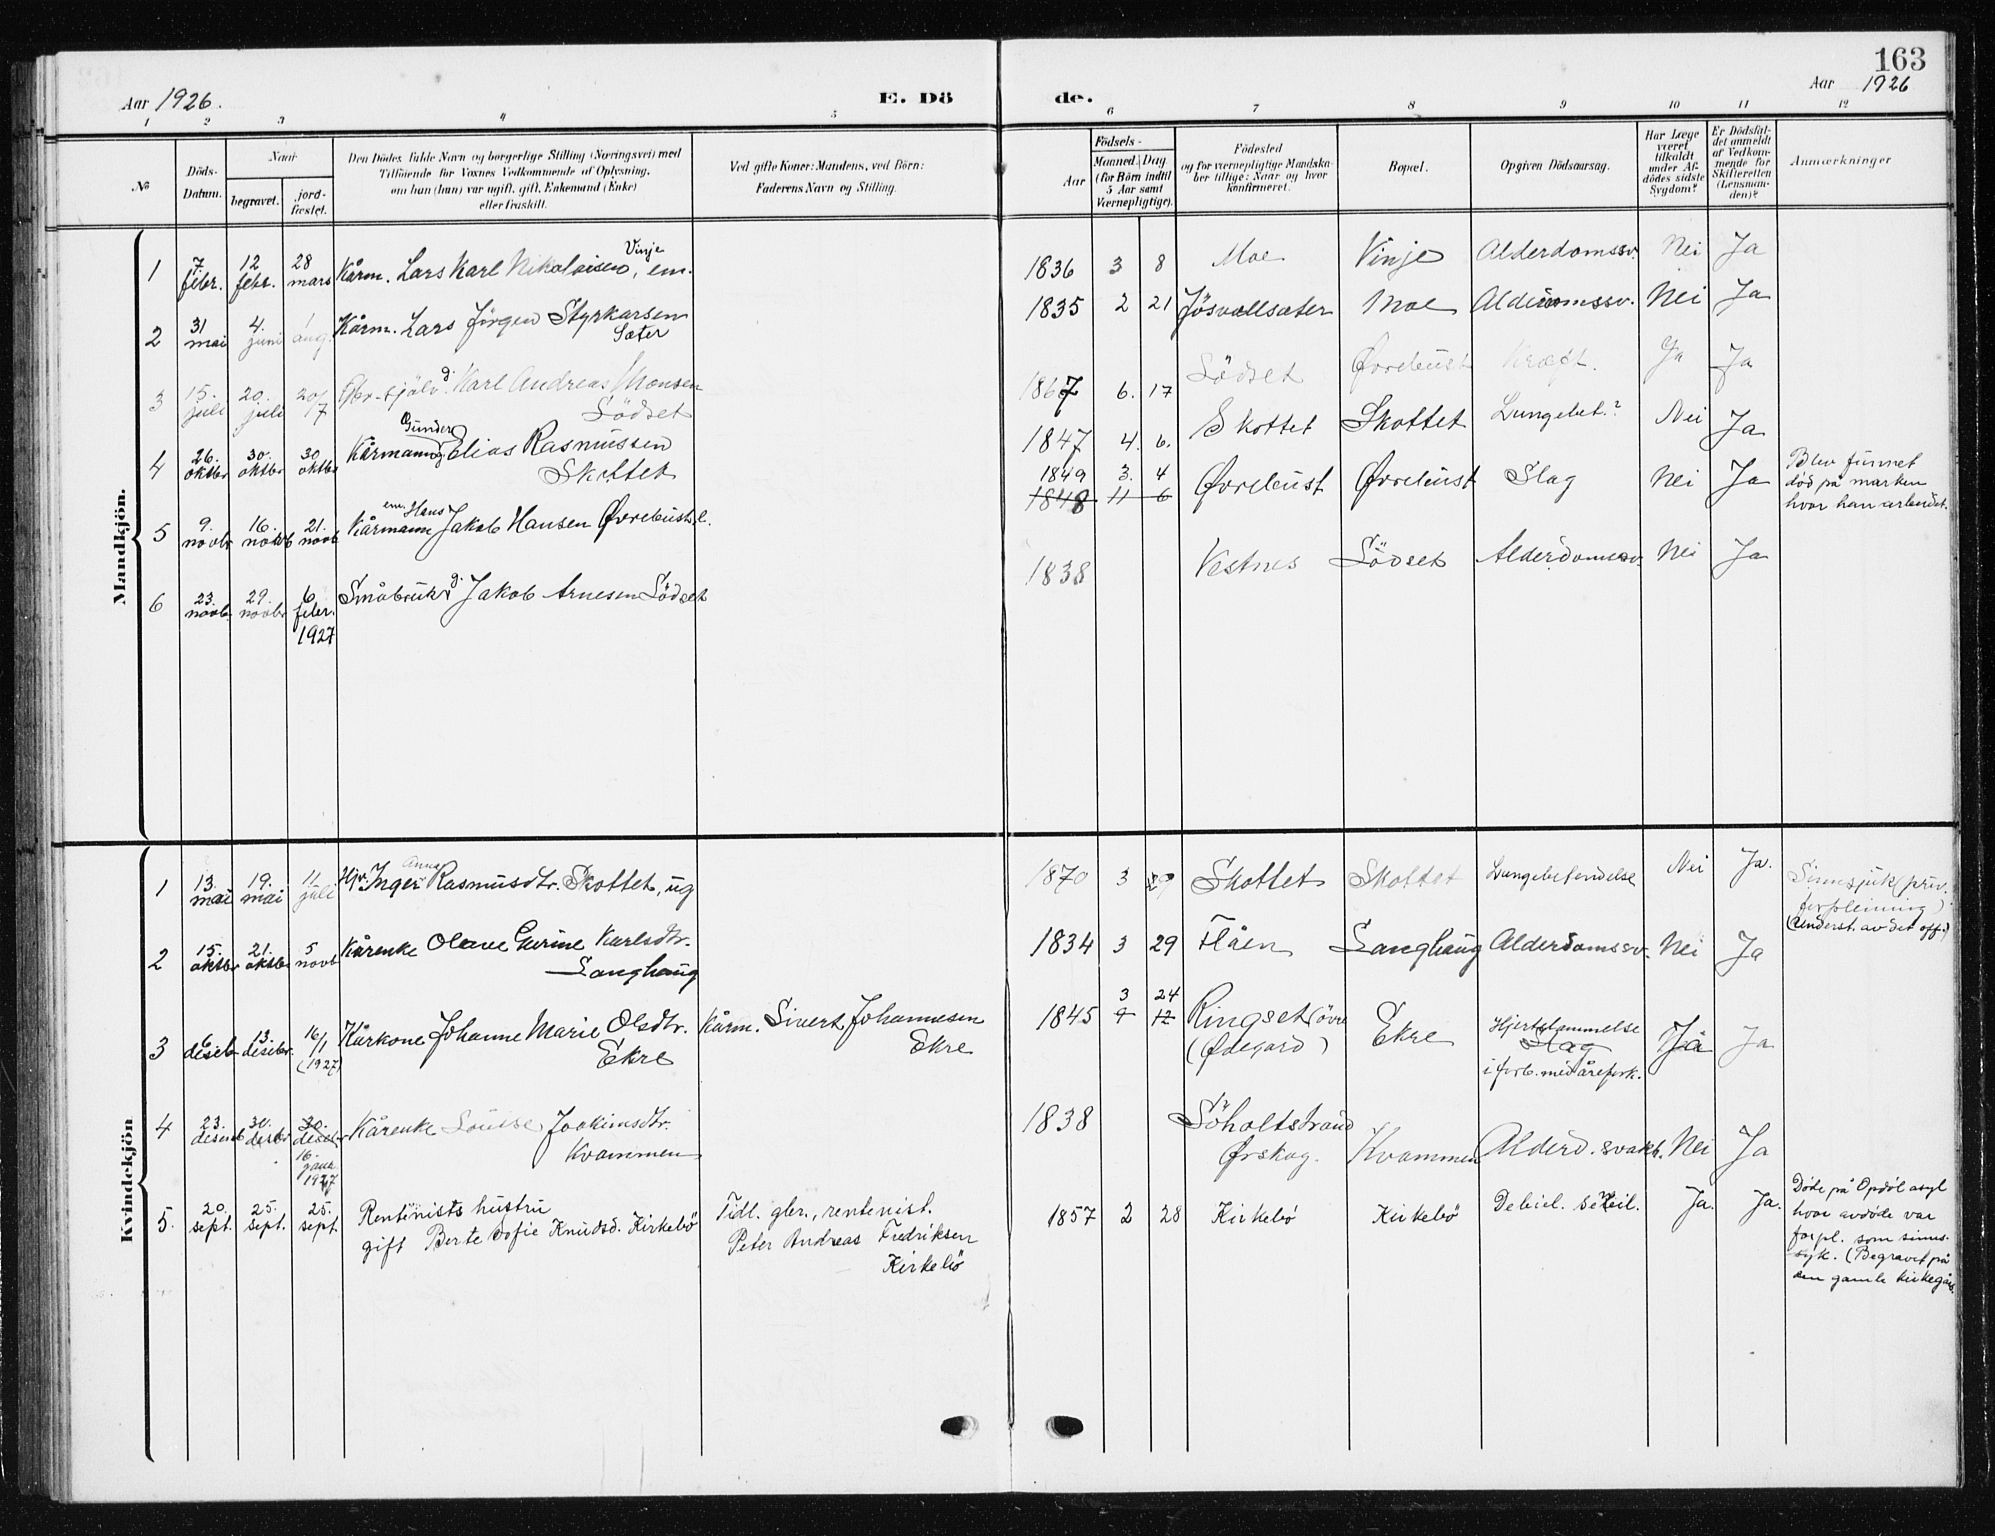 163
Aar 1926.
E. Dö
de.
Aar 1926
1 2 3 4 5 6 7 8 9 10 11 12
№
Döds-
Datum.
Naar
begravet.
jord-
fæstet.
Den Dödes fulde Navn og borgerlige Stilling (Næringsvei) med
Tilföiende for Voxnes Vedkommende af Oplysning,
om han (hun) var ugift, gift, Enkemand (Enke)
eller fraskilt.
Ved gifte Koner: Mandens, ved Börn:
Faderens Navn og Stilling.
Födsels-
Aar
Maaned. Dag
(for Börn indtil
5 Aar samt
Værnepligtige).
Födested
og for værnepligtige Mandska-
ber tillige: Naar og hvor
konfirmeret.
Bopæl.
Opgiven Dödsaarsag.
Har Læge
været
tilkaldt
under Af-
dödes sidste
Sygdom?
Er Dödsfal-
det anmeldt
af Vedkom-
mende for
Skifteretten
(Lensman-
den)?
Anmærkninger
Mandkjön.
1 7. febr. 12 febr. 28 mars Kårm. Lars Karl Nikolaisen Vinje, em. 1836 3 8 Moe Vinje Alderdomssv. Nei Ja
2 31 mai 4. juni 1 aug. Kårm. Lars Jörgen Styrkarsen
Sæter 1835 2 21 Jösvollsæter Moe Alderdomssv. Nei Ja
3 15. juli 20. juli 20/7 g. Karl Andreas Monsen
Lödset 1867 6. 17 Lödset Øvrebust Kræft. Ja Ja
4 26. oktbr 30. oktbr 30 oktbr Kårmann Gunder Elias Rasmussen
Skottet 1847 4. 6. Skottet Skottet Lungebet.? Nei Ja
5 9. novbr 16. novb 21. novb em. Hans
Kårmann Jakob Hansen Øvrebust 1849 3. 4
1848 11 6 Øvrebust Øvrebust Slag Nei Ja Blev funnet
död på marken
hvor han arbeidet.
6 23. novb. 29. novbr 6 febr. 1927 Småbruk. g. Jakob Arnesen Lödset 1838 Vestnes Lödset Alderdomssv. Nei Ja
Kvindekjön
1 13. mai 19. mai 11. juli Inger Anna Rasmusdtr. Skottet, ug 1870 3 29 Skottet Skottet Lungebetendelse Nei Ja. Sinnsjuk (priv.
forpleining)
(Underst. av det off.)
2 15. oktbr 21. oktbr 5 novb Kårenke Olave Gurine Karlsdtr.
Langhaug 1834 3 29 Flåen Langhaug Alderdomssv. Nei Ja
3 6 desebr 13. desebr. 16/1 (1927) Kårkone Johanne Marie Olsdtr.
Ekre Kårm. Sivert Johannesen
Ekre 1845 3 24
9 12 Ringset (övre
(Ødegard) Ekre Hjertelammelse
Slag
i forb. med årefork. Ja Ja
4 23. desemb 30. desbr 30. desebr
16. janu. 1927 Kårenke Louise Joakimsdtr.
Kvammen 1838 Söholtstrand
Ørskog. Kvammen Alderd. svakh. Nei Ja
5. 20. sept. 25. sept. 25. sept. Rentenists hustru
gift Berte Sofie Knudsd. Kirkebö Tidl. gbr., rentenist.
Peter Andreas Fredriksen
Kirkebö 1857 2 28 Kirkebö Kirkebö Debil. senil. Ja. Ja. Döde på Opdöl asyl
hvor avdöde var
forpl. som sinns-
syk. (Begravet på
den gamle kirkegård.